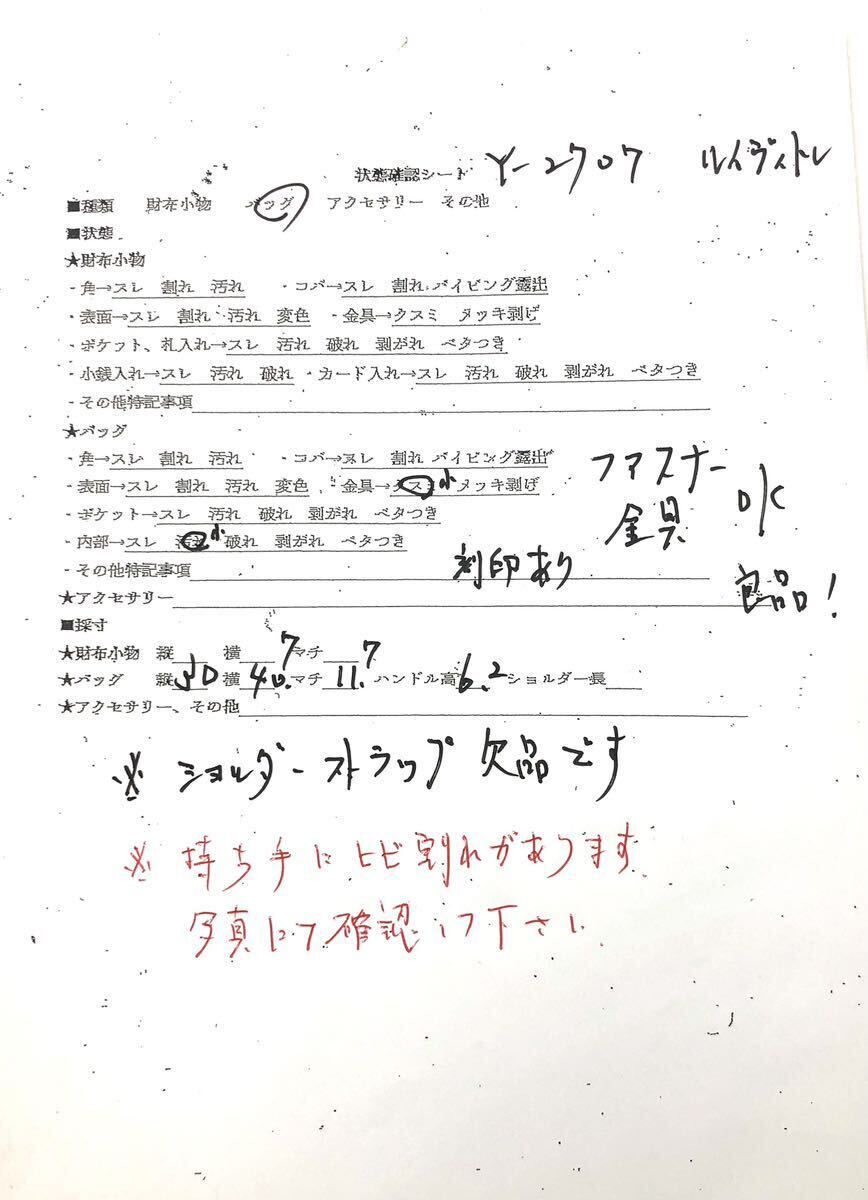 状態確認シート Y-2707 ルイヴィトン
■種類 財布小物 バッグ アクセサリー その他
■状態
★財布小物
・角→スレ 割れ 汚れ ・コバ→スレ 割れ パイピング露出
・表面→スレ 割れ 汚れ 変色 ・金具→クスミ メッキ剥げ
・ポケット、札入れ→スレ 汚れ 破れ 剥がれ ベタつき
・小銭入れ→スレ 汚れ 破れ ・カード入れ→スレ 汚れ 破れ 剥がれ ベタつき
・その他特記事項
★バッグ
・角→スレ 割れ 汚れ ・コバ→スレ 割れ パイピング露出
・表面→スレ 割れ 汚れ 変色 ・金具→クスミ小 メッキ剥げ
・ポケット→スレ 汚れ 破れ 剥がれ ベタつき
・内部→スレ 汚れ小 破れ 剥がれ ベタつき
・その他特記事項 刻印あり
ファスナー
金具 OK
良品!
★アクセサリー
■採寸
★財布小物 縦 横 マチ
★バッグ 縦30 横40.7 マチ11.7 ハンドル高6.2 ショルダー長
★アクセサリー、その他
※ ショルダーストラップ欠品です
※ 持ち手にヒビ割れがあります
写真にて確認して下さい